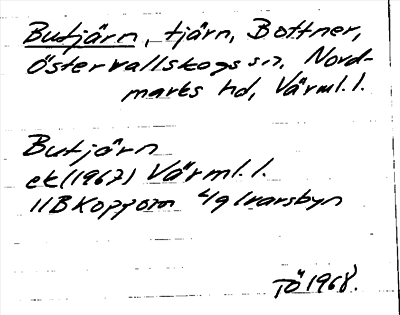 Butjärn, tjärn, Bottner,
Östervallskogs sn, Nord-
marks hd, Värml. l.
Butjärn
ek (1967) Värml. l.
11B Koppom 4g Ivarsbyn
TÖ 1968.